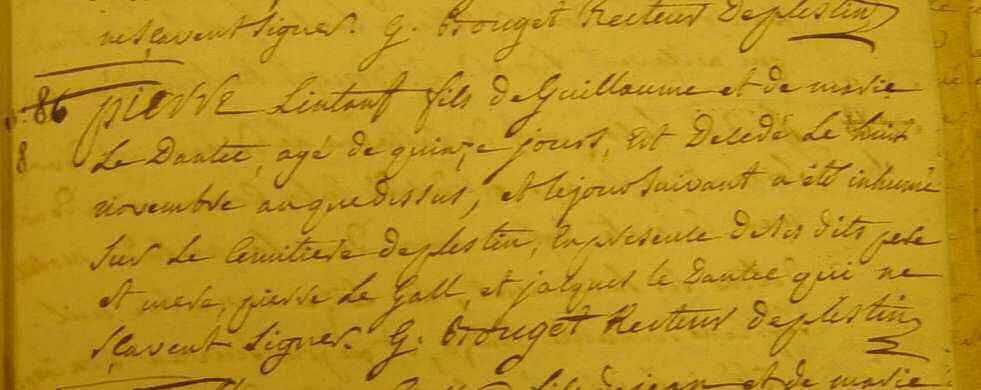 ne sçavent signer. G. Trouget Recteur de plestin
n.° 86 pierre Lintanf fils de Guillaume et de marie
8 Le Dantec, agé de quinze jours, Est Decedé Le huit
novembre an que dessus, et le jour suivant a été inhumé
sur Le Cemitiere de plestin, En presence de ses dits pere
et mere, pierre Le Gall, et jacques le Dantec qui ne
sçavent signer. G. Trouget Recteur de plestin
fils de jean et de marie